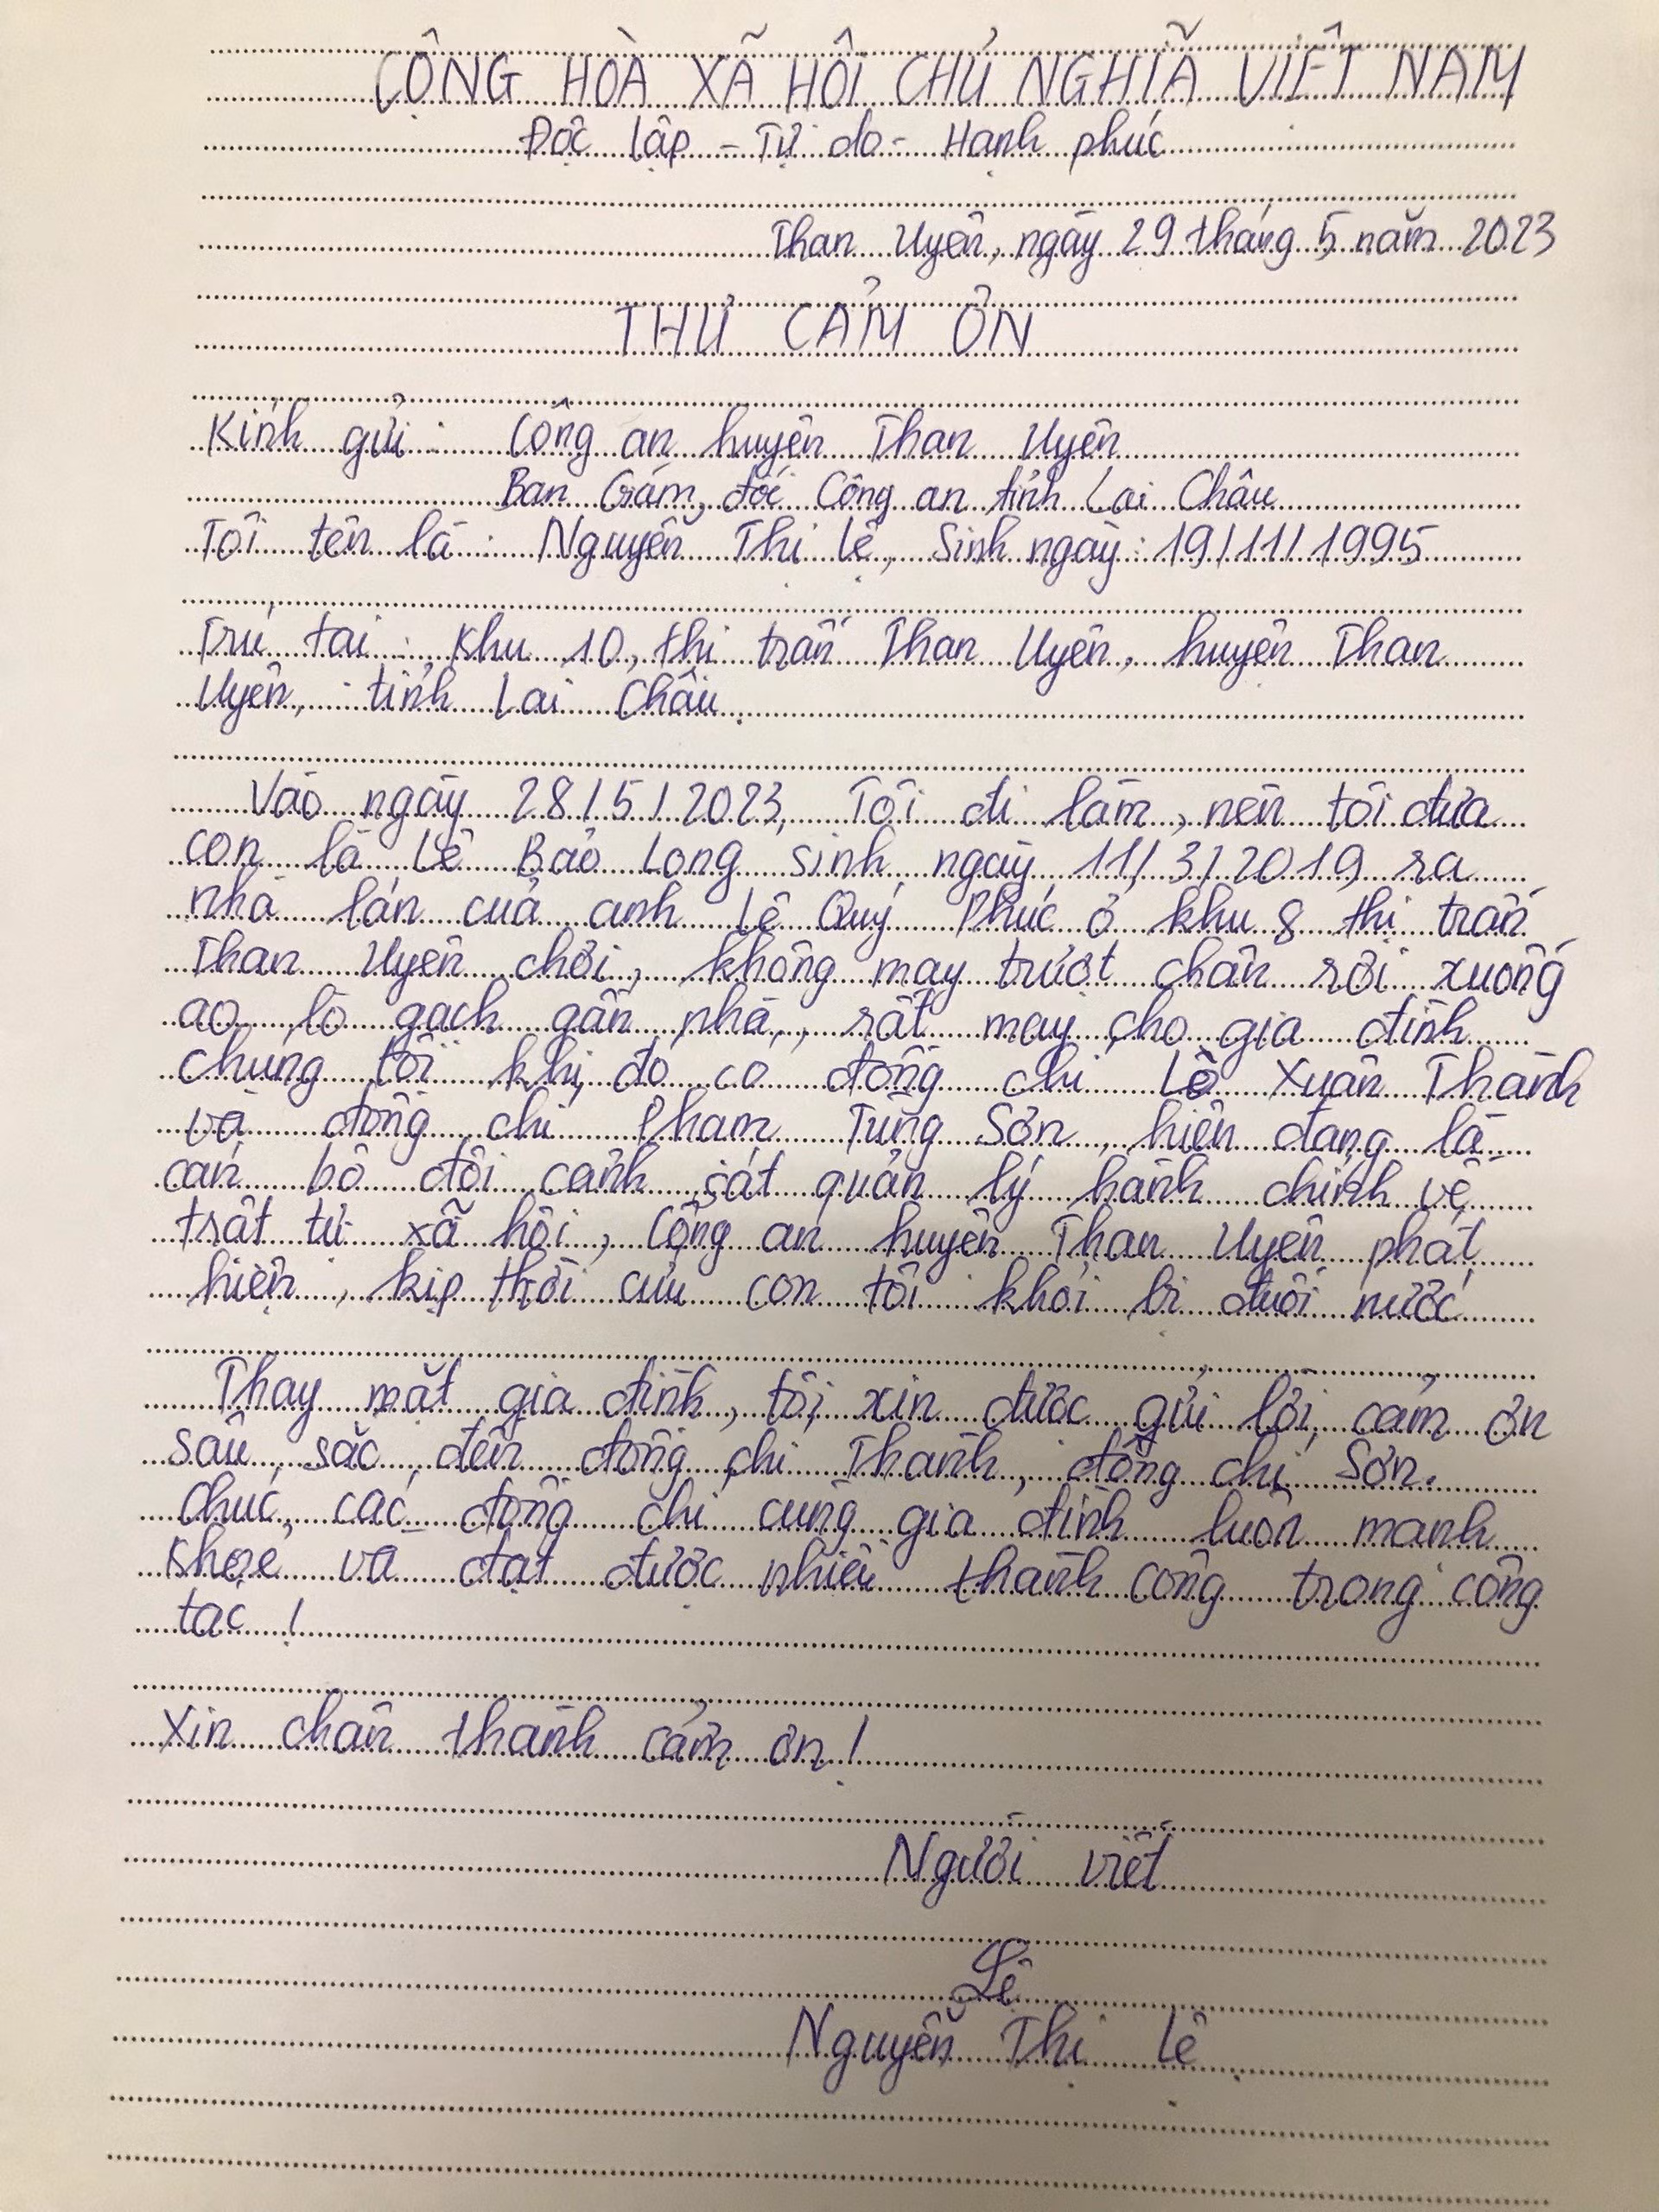 CỘNG HÒA XÃ HỘI CHỦ NGHĨA VIỆT NAM
Độc lập - Tự do - Hạnh phúc
Than Uyên, ngày 29 tháng 5 năm 2023
THƯ CẢM ƠN
Kính gửi : Công an huyện Than Uyên
Ban Giám đốc Công an tỉnh Lai Châu
Tôi tên là : Nguyễn Thị Lệ, Sinh ngày : 19/11/1995
Trú tại : Khu 10, thị trấn Than Uyên, huyện Than
Uyên, tỉnh Lai Châu
Vào ngày 28/5/2023, Tôi đi làm, nên tôi đưa
con là Lê Bảo Long sinh ngày 11/3/2019 ra
nhà lán của anh Lê Quý Phúc ở khu 8 thị trấn
Than Uyên chơi, không may trượt chân rơi xuống
ao lò gạch gần nhà, rất may cho gia đình
chúng tôi khi đó có đồng chí Lò Xuân Thành
và đồng chí Phạm Tùng Sơn, hiện đang là
cán bộ đội cảnh sát quản lý hành chính về
trật tự xã hội, Công an huyện Than Uyên phát
hiện, kịp thời cứu con tôi khỏi bị đuối nước
Thay mặt gia đình, tôi xin được gửi lời cảm ơn
sâu sắc đến đồng chí Thành, đồng chí Sơn.
chúc các đồng chí cùng gia đình luôn mạnh
khỏe và đạt được nhiều thành công trong công
tác !
Xin chân thành cảm ơn !
Người viết
Lệ
Nguyễn Thị Lệ